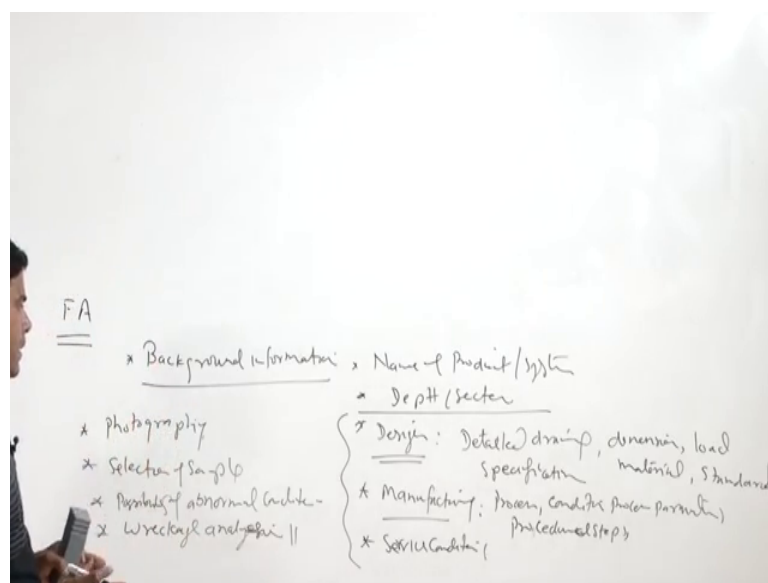 FA
* Background information
* Photography
* Selection of Sample
* Possibility of abnormal Condition
* Wreckage analysis ||
* Name of Product/System
* Deptt/Sector
* Design: Detailed drawing, dimension, load
Specification material, Standard
* Manufacturing: Process, condition, Process Parameters,
Procedure steps,
* Service Condition,